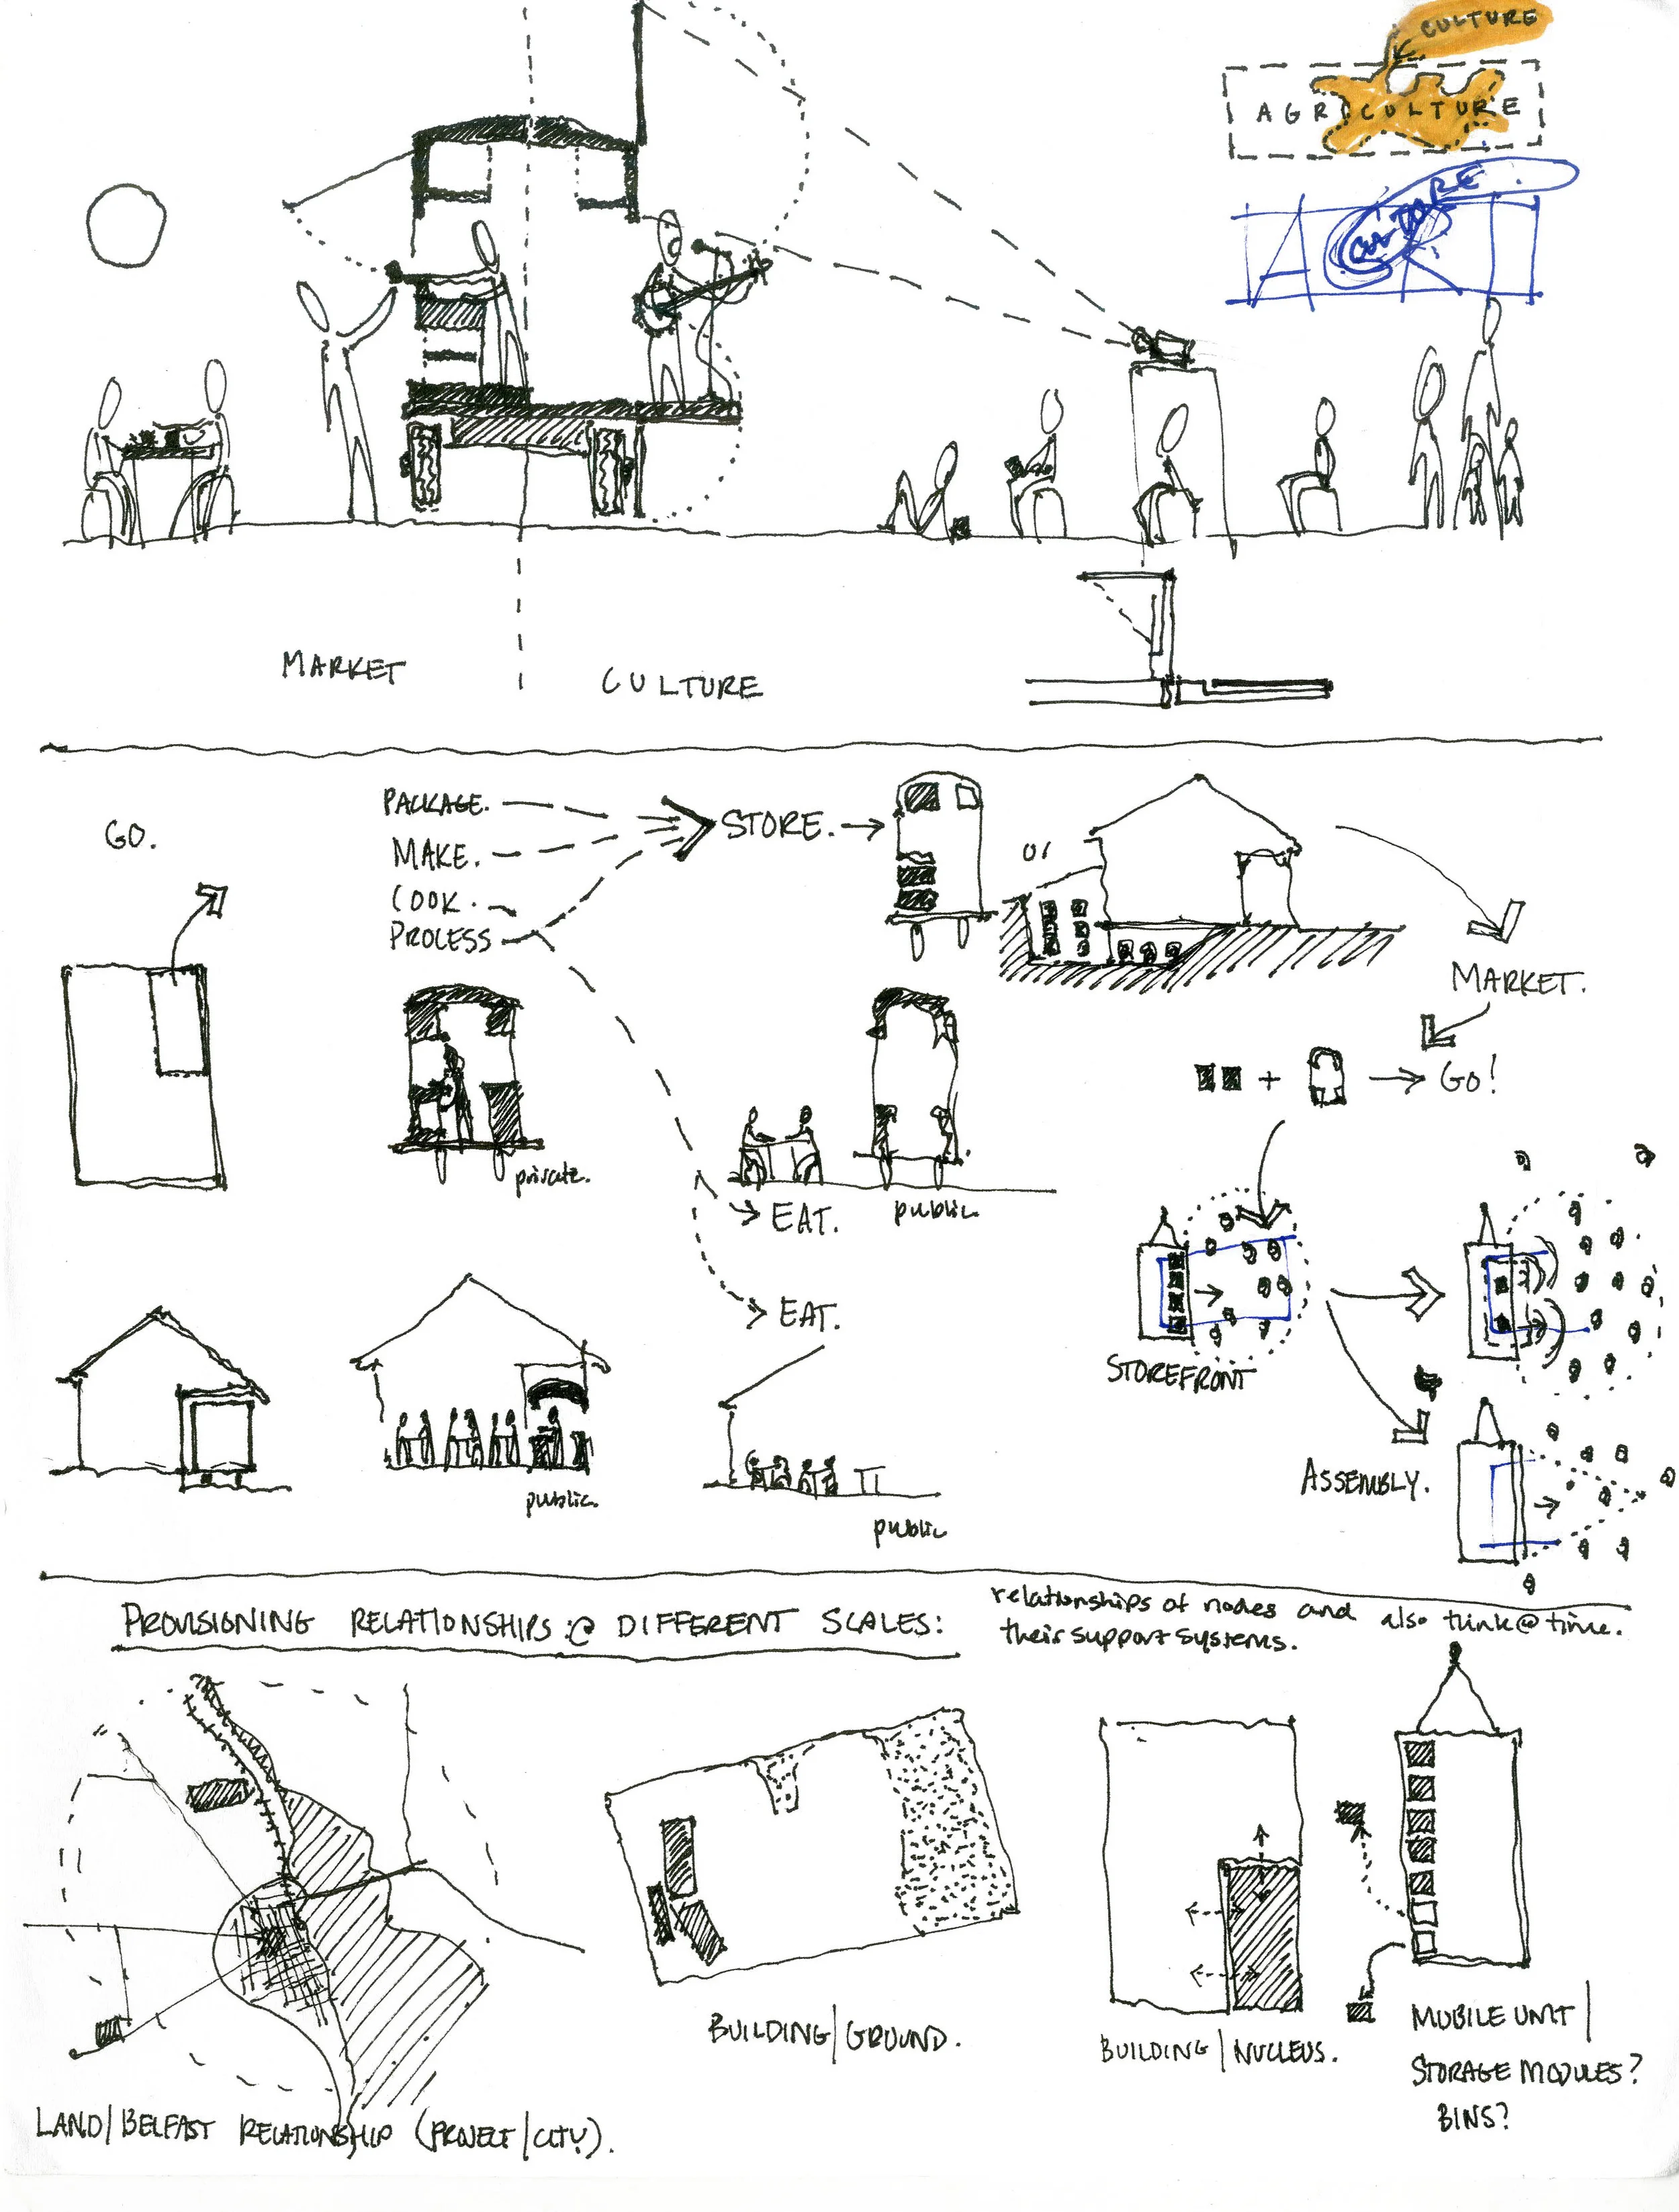 CULTURE
AGRICULTURE
CULTURE
ART
MARKET
CULTURE
GO.
PACKAGE.
MAKE.
COOK.
PROCESS
STORE.
or
MARKET.
+
GO!
private.
EAT.
public.
EAT.
public.
public
STOREFRONT
ASSEMBLY.
PROVISIONING RELATIONSHIPS @ DIFFERENT SCALES:
relationships of nodes and
their support systems.
also think @ time.
LAND/BELFAST RELATIONSHIP (PROJECT/CITY).
BUILDING/GROUND.
BUILDING/NUCLEUS.
MOBILE UNIT/
STORAGE MODULES?
BINS?